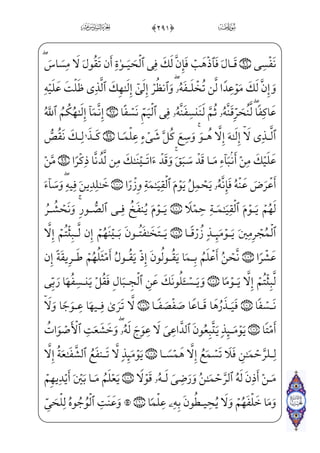 سُورَةُ طه ﴿٢٩١﴾ الجُزءُ السَّادِسَ عَشَرَ
نَفْسِى ۝٩٦ قَالَ فَٱذْهَبْ فَإِنَّ لَكَ فِى ٱلْحَيَوٰةِ أَن تَقُولَ لَا مِسَاسَ ۖ
وَإِنَّ لَكَ مَوْعِدًا لَّن تُخْلَفَهُۥ ۖ وَٱنظُرْ إِلَىٰٓ إِلَـٰهِكَ ٱلَّذِى ظَلْتَ عَلَيْهِ
عَاكِفًا ۖ لَّنُحَرِّقَنَّهُۥ ثُمَّ لَنَنسِفَنَّهُۥ فِى ٱلْيَمِّ نَسْفًا ۝٩٧ إِنَّمَآ إِلَـٰهُكُمُ ٱللَّهُ
ٱلَّذِى لَآ إِلَـٰهَ إِلَّا هُوَ ۚ وَسِعَ كُلَّ شَىْءٍ عِلْمًا ۝٩٨ كَذَٰلِكَ نَقُصُّ
عَلَيْكَ مِنْ أَنۢبَآءِ مَا قَدْ سَبَقَ ۚ وَقَدْ ءَاتَيْنَـٰكَ مِن لَّدُنَّا ذِكْرًا ۝٩٩ مَّنْ
أَعْرَضَ عَنْهُ فَإِنَّهُۥ يَحْمِلُ يَوْمَ ٱلْقِيَـٰمَةِ وِزْرًا ۝١٠٠ خَـٰلِدِينَ فِيهِ ۖ وَسَآءَ
لَهُمْ يَوْمَ ٱلْقِيَـٰمَةِ حِمْلًا ۝١٠١ يَوْمَ يُنفَخُ فِى ٱلصُّورِ ۚ وَنَحْشُرُ
ٱلْمُجْرِمِينَ يَوْمَئِذٍ زُرْقًا ۝١٠٢ يَتَخَـٰفَتُونَ بَيْنَهُمْ إِن لَّبِثْتُمْ إِلَّا
عَشْرًا ۝١٠٣ نَّحْنُ أَعْلَمُ بِمَا يَقُولُونَ إِذْ يَقُولُ أَمْثَلُهُمْ طَرِيقَةً إِن
لَّبِثْتُمْ إِلَّا يَوْمًا ۝١٠٤ وَيَسْـَٔلُونَكَ عَنِ ٱلْجِبَالِ فَقُلْ يَنسِفُهَا رَبِّى
نَسْفًا ۝١٠٥ فَيَذَرُهَا قَاعًا صَفْصَفًا ۝١٠٦ لَّا تَرَىٰ فِيهَا عِوَجًا وَلَآ
أَمْتًا ۝١٠٧ يَوْمَئِذٍ يَتَّبِعُونَ ٱلدَّاعِىَ لَا عِوَجَ لَهُۥ ۖ وَخَشَعَتِ ٱلْأَصْوَاتُ
لِلرَّحْمَـٰنِ فَلَا تَسْمَعُ إِلَّا هَمْسًا ۝١٠٨ يَوْمَئِذٍ لَّا تَنفَعُ ٱلشَّفَـٰعَةُ إِلَّا
مَنْ أَذِنَ لَهُ ٱلرَّحْمَـٰنُ وَرَضِىَ لَهُۥ قَوْلًا ۝١٠٩ يَعْلَمُ مَا بَيْنَ أَيْدِيهِمْ
وَمَا خَلْفَهُمْ وَلَا يُحِيطُونَ بِهِۦ عِلْمًا ۝١١٠ ۞ وَعَنَتِ ٱلْوُجُوهُ لِلْحَىِّ